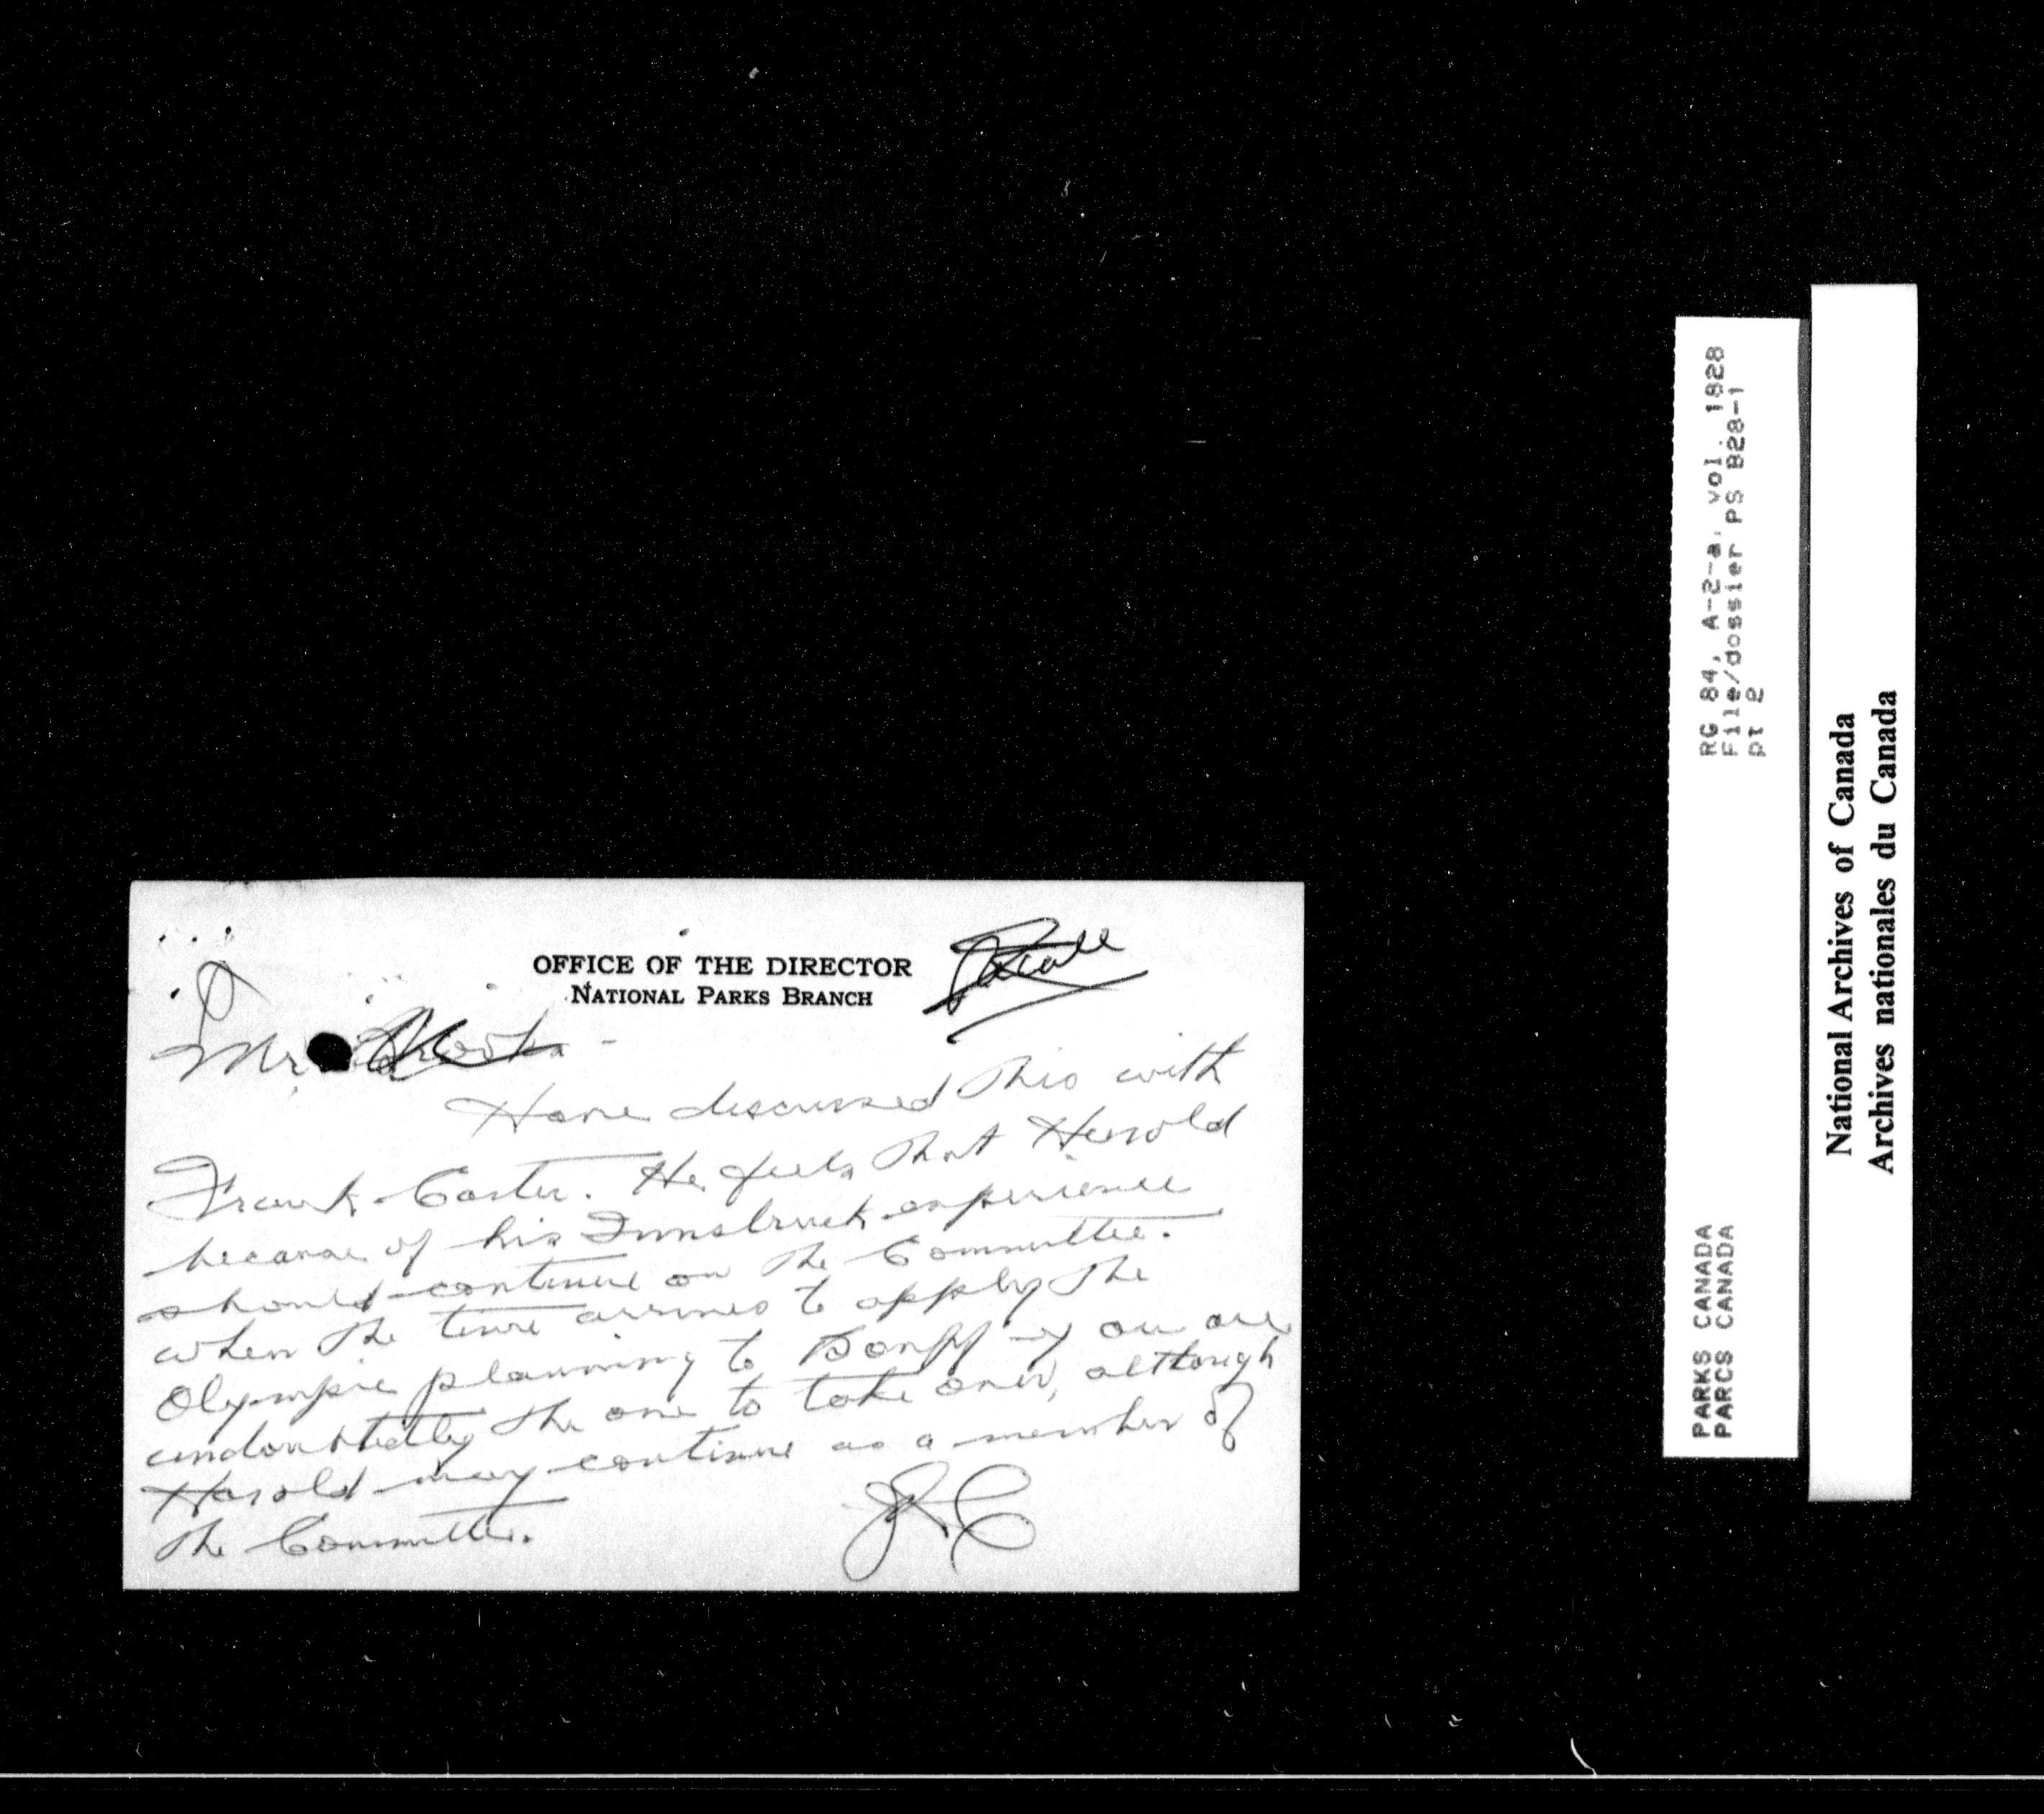 OFFICE OF THE DIRECTOR
NATIONAL PARKS BRANCH
Mr
Have discussed this with
Frank Carter. He feels that Harold
because of his Innsbruck experience
should continue on the Committee.
when the time arrives to apply the
Olympic planning to Banff you are
undoubtedly the one to take over, although
Harold may continue as a member of
the Committee.
RG 84, A-2-a, vol. 1828
File/dossier PS B28-1
pt 2
PARKS CANADA
PARCS CANADA
National Archives of Canada
Archives nationales du Canada